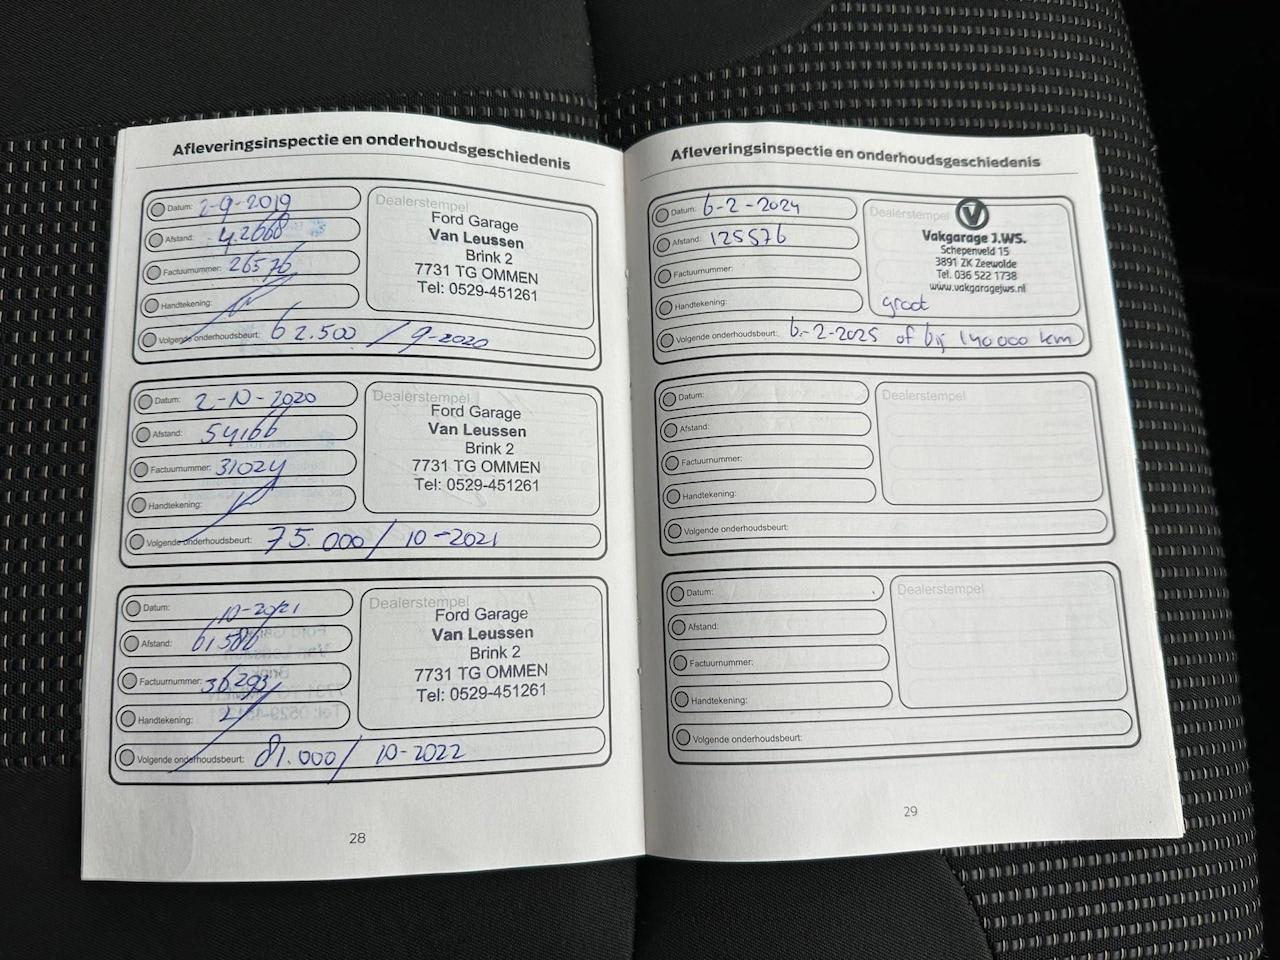 Afleveringsinspectie en onderhoudsgeschiedenis
Datum: 2-9-2019
Afstand: 42668
Factuurnummer: 26576
Handtekening:
Volgende onderhoudsbeurt: 62.500 / 9-2020
Dealerstempel
Ford Garage
Van Leussen
Brink 2
7731 TG OMMEN
Tel: 0529-451261
Datum: 2-10-2020
Afstand: 54166
Factuurnummer: 31024
Handtekening:
Volgende onderhoudsbeurt: 75.000 / 10-2021
Dealerstempel
Ford Garage
Van Leussen
Brink 2
7731 TG OMMEN
Tel: 0529-451261
Datum: 10-2021
Afstand: 61586
Factuurnummer: 36293
Handtekening:
Volgende onderhoudsbeurt: 81.000 / 10-2022
Dealerstempel
Ford Garage
Van Leussen
Brink 2
7731 TG OMMEN
Tel: 0529-451261
28
Afleveringsinspectie en onderhoudsgeschiedenis
Datum: 6-2-2024
Afstand: 125576
Factuurnummer:
Handtekening:
Volgende onderhoudsbeurt: 6-2-2025 of bij 140000 km
Dealerstempel
Vakgarage J.WS.
Schepenveld 15
3891 ZK Zeewolde
Tel. 036 522 1738
www.vakgaragejws.nl
groot
Datum:
Afstand:
Factuurnummer:
Handtekening:
Volgende onderhoudsbeurt:
Dealerstempel
Datum:
Afstand:
Factuurnummer:
Handtekening:
Volgende onderhoudsbeurt:
Dealerstempel
29